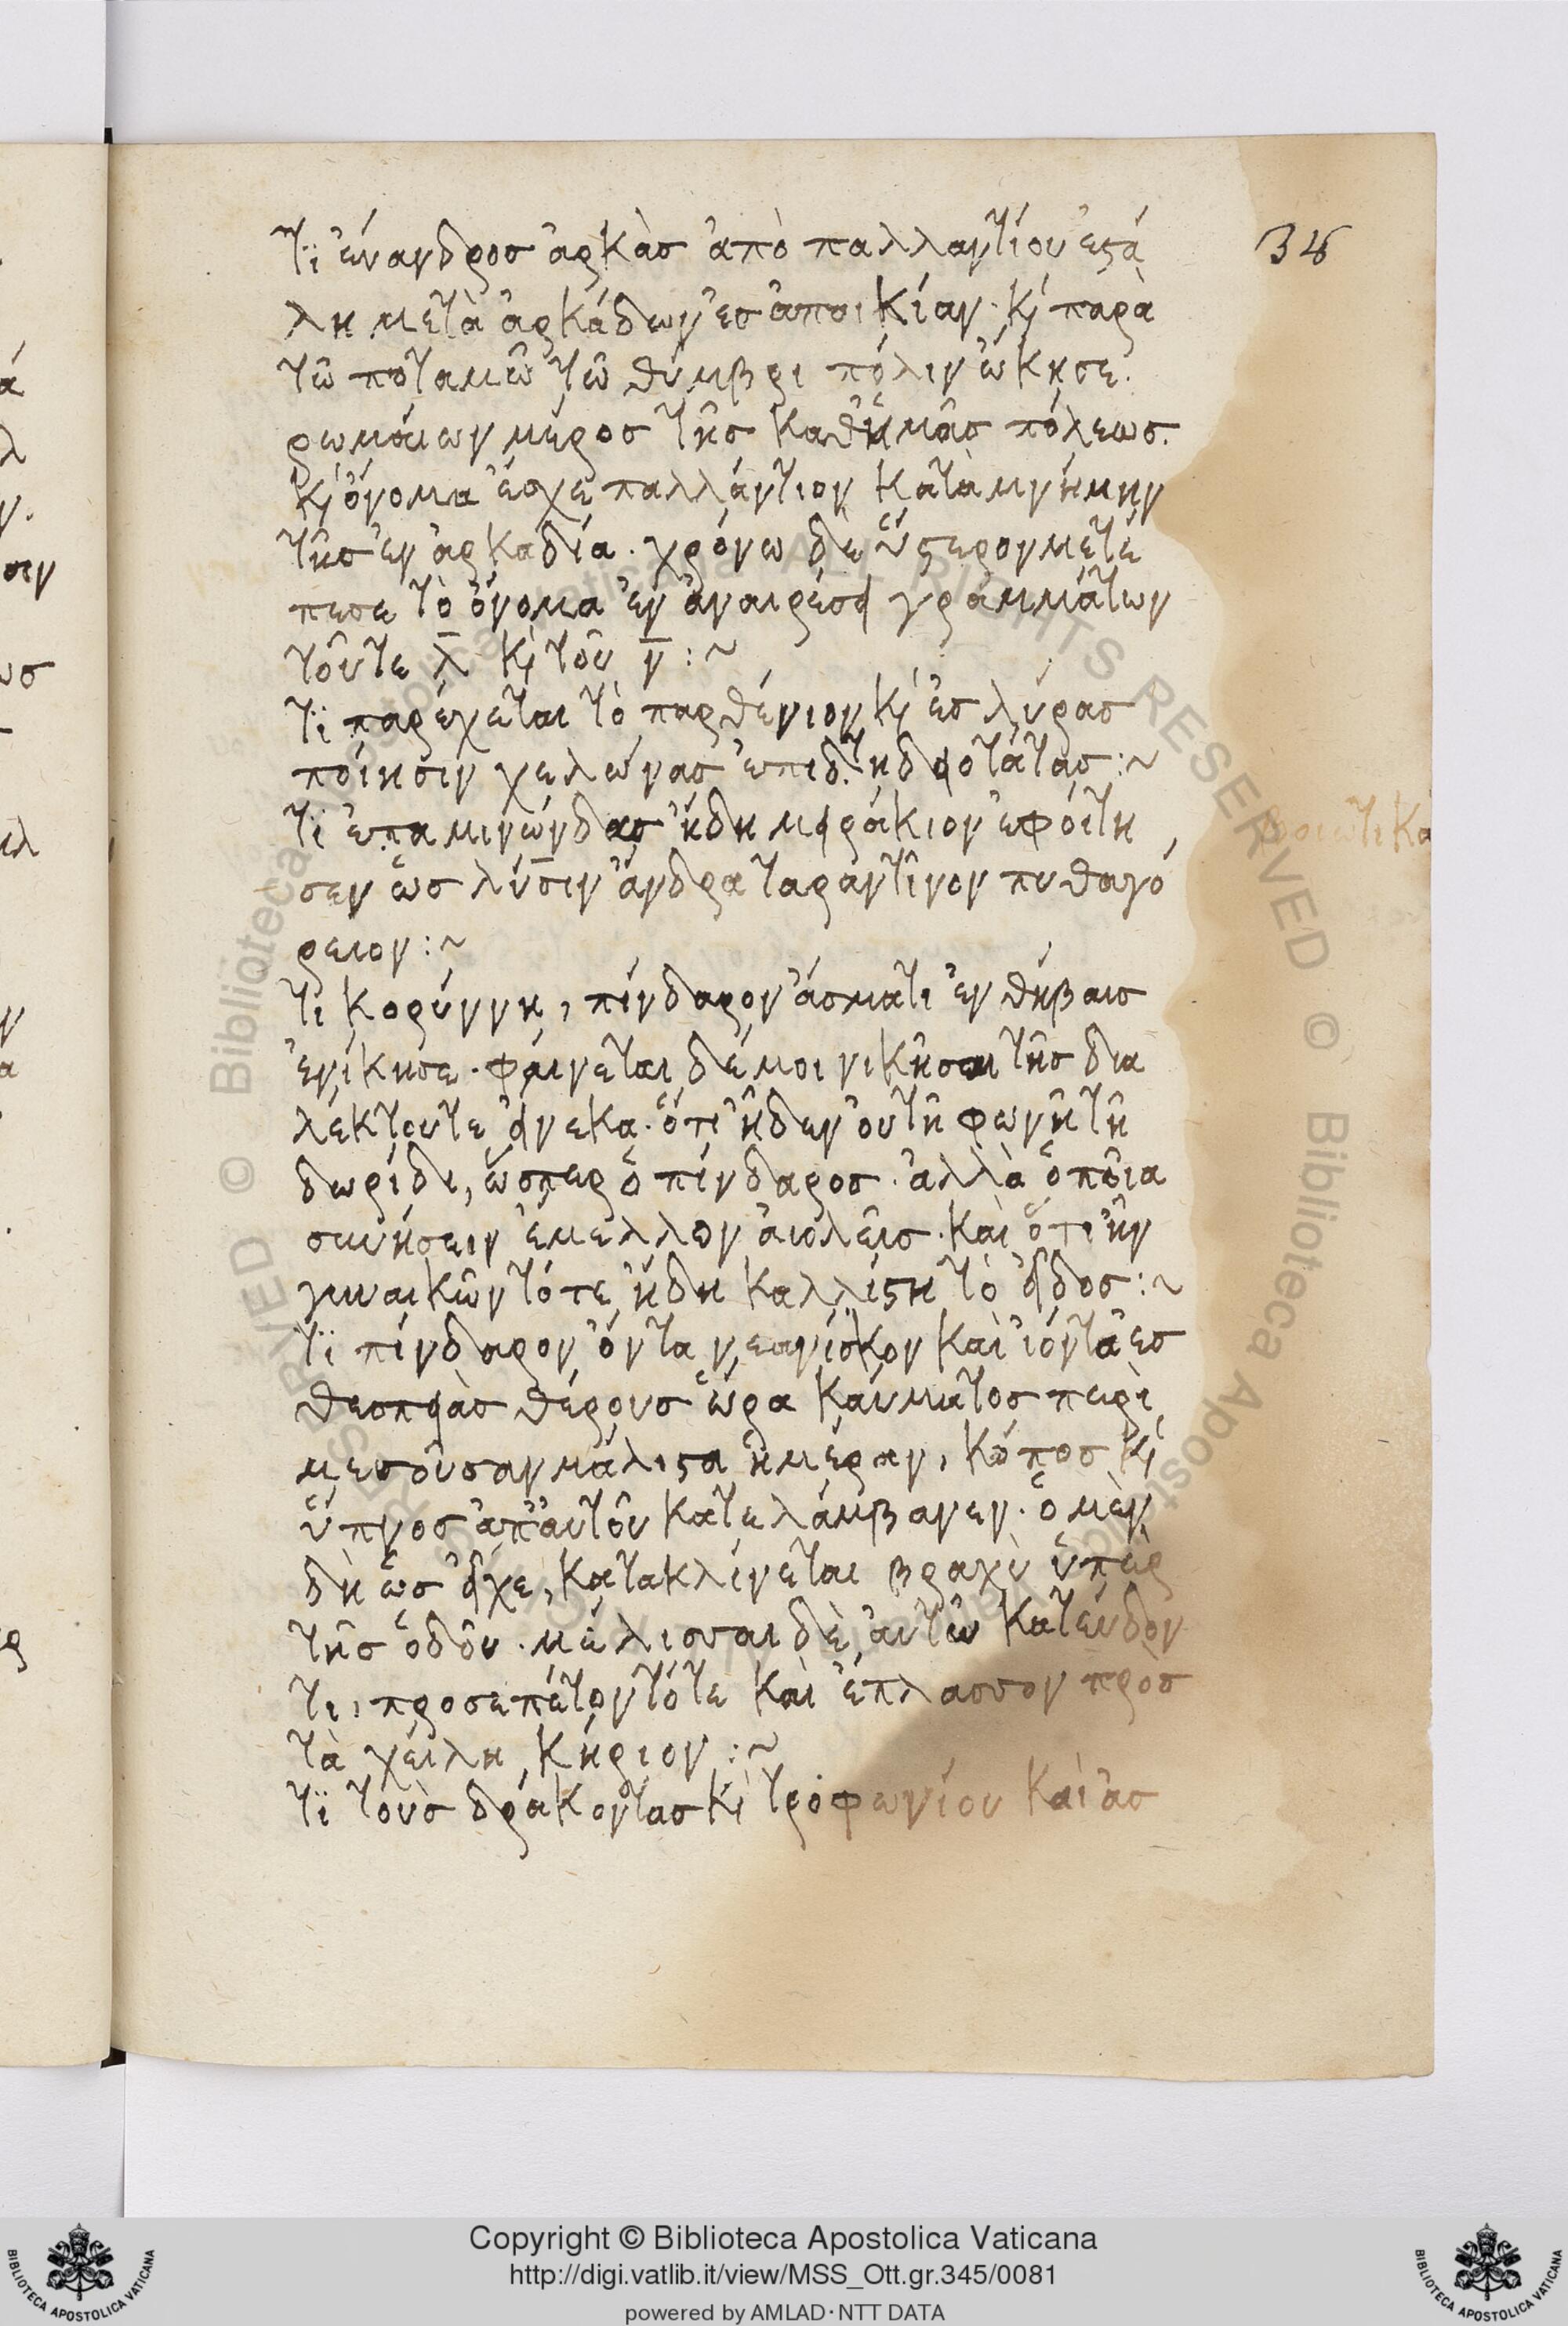 Ὅτι εὔανδρος ἀρκὰσ ἀπὸ παλλαντίου ἐστά
λη μετὰ ἀρκάδων ἐσ ἀποικίαν· κὶ παρὰ
τῶ ποταμῶ τῶ θύμβρι πόλιν ὤκησε.
ρωμαίων μέροσ τῆσ καθ' ἡμᾶσ πόλεωσ.
κὶ ὄνομα ἔσχε παλλάντιον κατὰ μνήμην
τῆσ ἐν ἀρκαδία. χρόνω δὲ ὕστερον μετέ
πεσε τὸ ὄνομα ἐν ἀναιρέσει γραμμάτων
τοῦτε λ̄ κὶ τοῦ ν̄ :~
Ὅτι παρέχεται τὸ παρθένιον κὶ ἐσ λύρασ
ποίησιν χελώνασ ἐπιτηδειοτάτασ :~
Ὅτι ἐπαμινώνδασ ἤδη μειράκιον ἐφοίτη
σεν ὡσ λύσιν ἄνδρα ταραντῖνον πυθαγό
ρειον :~
Ὅτι κορύννη, πίνδαρον ἄσματι ἐν θήβαισ
ἐνίκησε. φαίνεται δέ μοι νικῆσαι τῆσ δια
λέκτουτε εἵνεκα. ὅτι ἦδεν οὐ τῆ φωνῆ τῆ
δωρίδι, ὥσπερ ὁ πίνδαροσ. ἀλλὰ ὁποῖα
συνήσειν ἔμελλον αἰολεῖσ. καὶ ὅτι ἦν
γυναικῶν τότε ἤδη καλλίστη τὸ εἶδοσ :~
Ὅτι πίνδαρον ὄντα νεανίσκον καὶ ἰόντα ἐσ
θεσπειὰσ θέρουσ ὥρα καύματοσ περὶ
μεσοῦσαν μάλιστα ἡμέραν, κόποσ κὶ
ὕπνοσ ἀπ' αὐτοῦ κατελάμβανεν. ὁ μὲν
δὴ ὡσ εἶχε, κατακλίνεται βραχὺ ὑπὲρ
τῆσ ὁδοῦ. μέλισσαι δὲ αὐτῶ κατεύδον
τι, προσεπέτοντότε καὶ ἔπλασσον πρὸσ
τὰ χείλη, κήριον :~
Ὅτι τοὺσ δράκοντασ κὶ τροφωνίου καὶ ἀσ
34
βοιωτικα
Copyright © Biblioteca Apostolica Vaticana
http://digi.vatlib.it/view/MSS_Ott.gr.345/0081
powered by AMLAD · NTT DATA